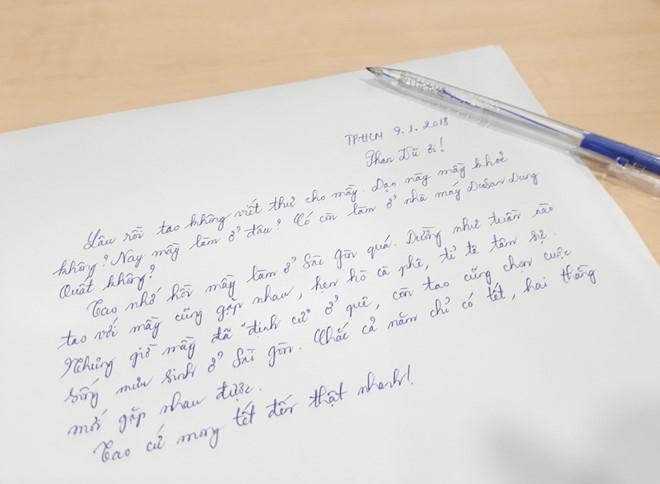 TP.HCM 9.1.2018
Phan Dũ ơi!
Lâu rồi tao không viết thư cho mầy. Dạo này mầy khoẻ
không? Nay mầy làm ở đâu? Có còn làm ở nhà máy Dusan Dung
Quất không?
Tao nhớ hồi mầy làm ở Sài Gòn quá. Dường như tuần nào
tao với mầy cũng gặp nhau, hẹn hò cà phê, tỉ tê tâm sự.
Nhưng giờ mầy đã "định cư" ở quê, còn tao cũng chọn cuộc
sống mưu sinh ở Sài Gòn. Chắc cả năm chỉ có tết, hai thằng
mới gặp nhau được.
Tao cứ mong tết đến thật nhanh!